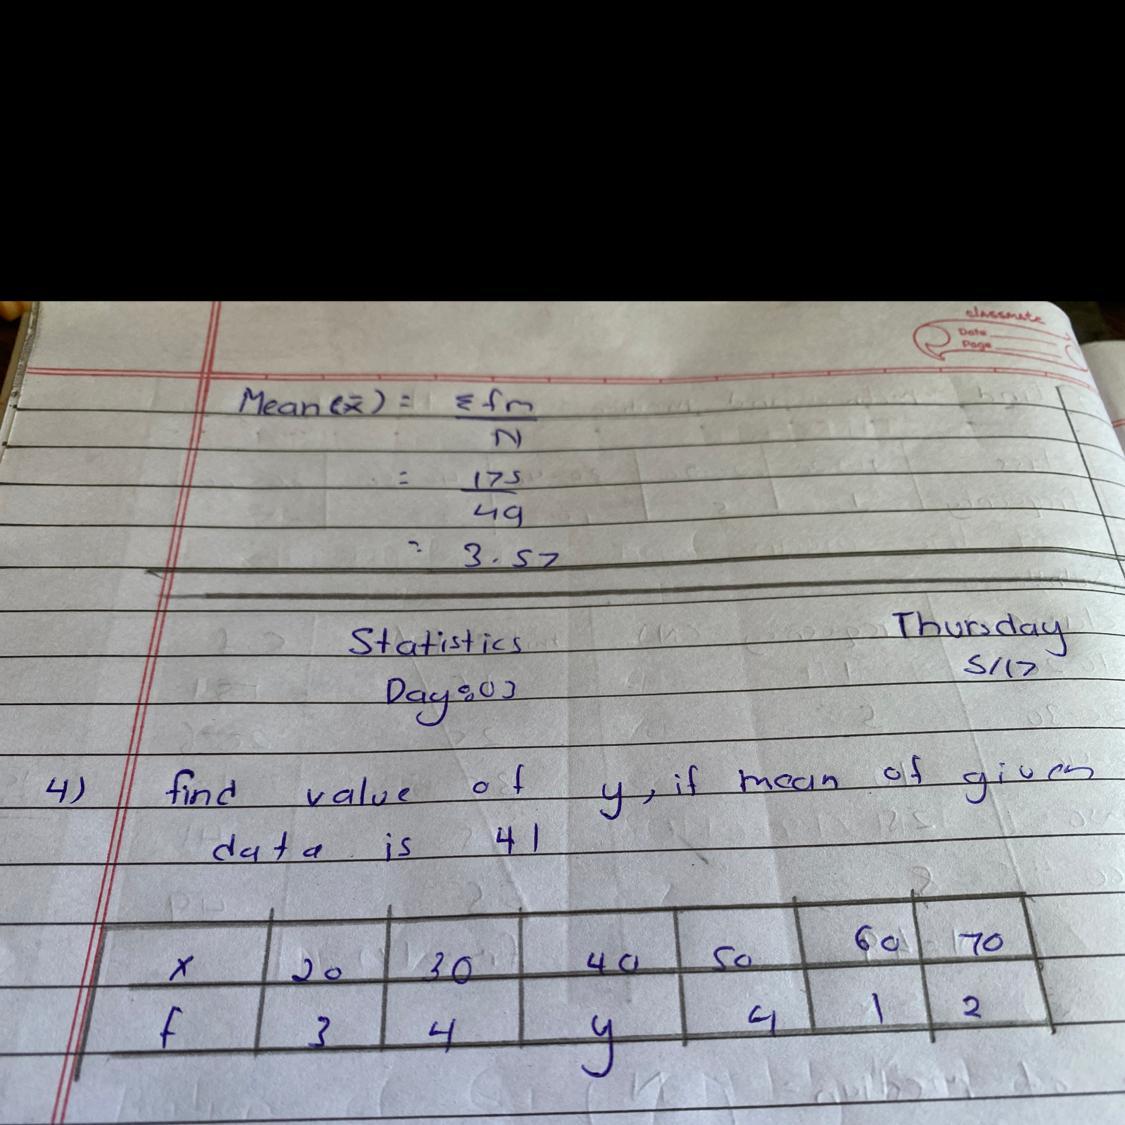 classmate
Date
Page
Mean (x̄) = Σfm
N
= 175
49
= 3.57
Statistics
Thursday
Day:03
5/17
4) find value of y, if mean of given
data is 41
x 20 30 40 50 60 70
f 3 4 y 4 1 2